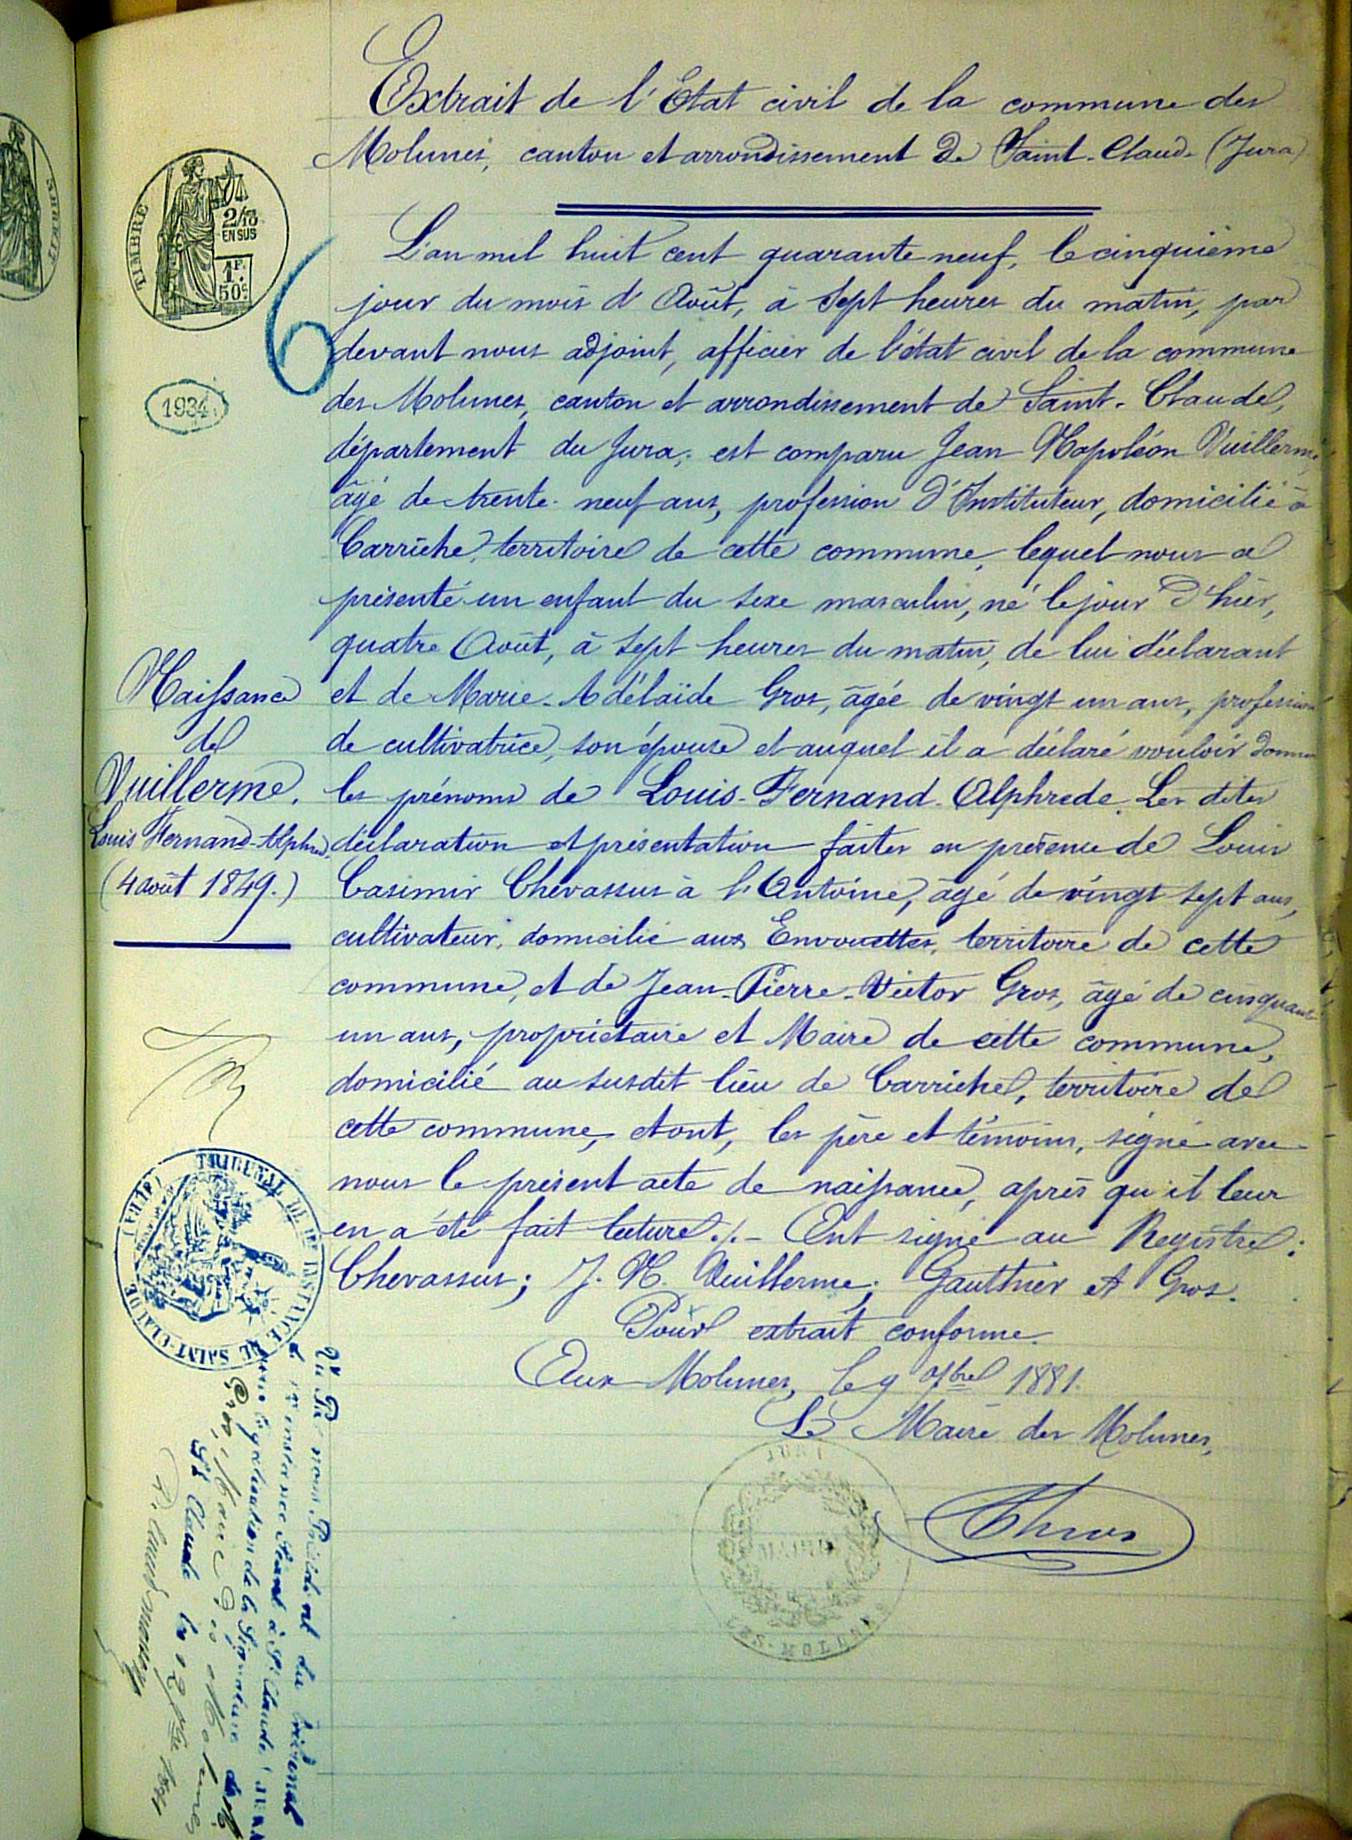 Extrait de l'Etat civil de la commune des
Molunes, canton et arrondissement de Saint-Claude (Jura)
TIMBRE
2/10
EN SUS
1F.
50c
6
1934
L'an mil huit cent quarante neuf, le cinquième
jour du mois d'Août, à sept heures du matin, par
devant nous adjoint, officier de l'état civil de la commune
des Molunes, canton et arrondissement de Saint-Claude,
département du Jura, est comparu Jean Napoléon Vuillerme,
âgé de trente-neuf ans, profession d'Instituteur, domicilié à
Carriche, territoire de cette commune, lequel nous a
présenté un enfant du sexe masculin, né le jour d'hier,
quatre Août, à sept heures du matin, de lui déclarant
et de Marie-Adélaïde Gros, âgée de vingt un ans, profession
de cultivatrice, son épouse et auquel il a déclaré vouloir donner
les prénoms de Louis-Fernand-Alphrede. Les dites
déclaration et présentation faites en présence de Louis
Casimir Chevassus à l'Antoine, âgé de vingt sept ans,
cultivateur, domicilié aux Envouettes, territoire de cette
commune, et de Jean-Pierre-Victor Gros, âgé de cinquante
un ans, propriétaire et Maire de cette commune,
domicilié au susdit lieu de Carriche, territoire de
cette commune, et ont, les père et témoins, signé avec
nous le présent acte de naissance, après qu'il leur
en a été fait lecture ./. Ont signé au Registre :
Chevassus; J. N. Vuillerme; Gauthier et Gros.
Pour extrait conforme
Aux Molunes, le 9 9bre 1881.
Le Maire des Molunes,
Naissance
de
Vuillerme.
Louis Fernand-Alphred.
(4 août 1849.)
TRIBUNAL DE 1RE INSTANCE DE SAINT-CLAUDE (JURA)
Vu par nous Président du tribunal
de 1re instance séant à St Claude (JURA
pour légalisation de la Signature de M
Gros, Maire des Molunes
St Claude le 12 9bre 1881
MAIRIE
JURA
LES MOLUNES